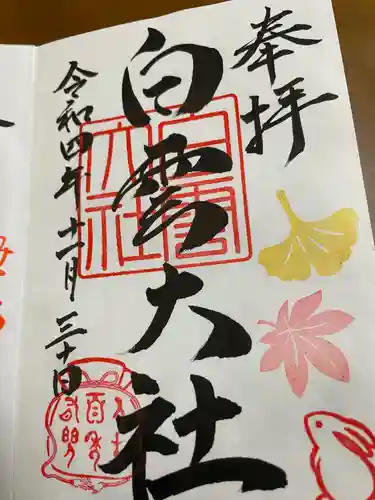 奉拝
白雲大社
令和四年十一月三十日
白雲大社